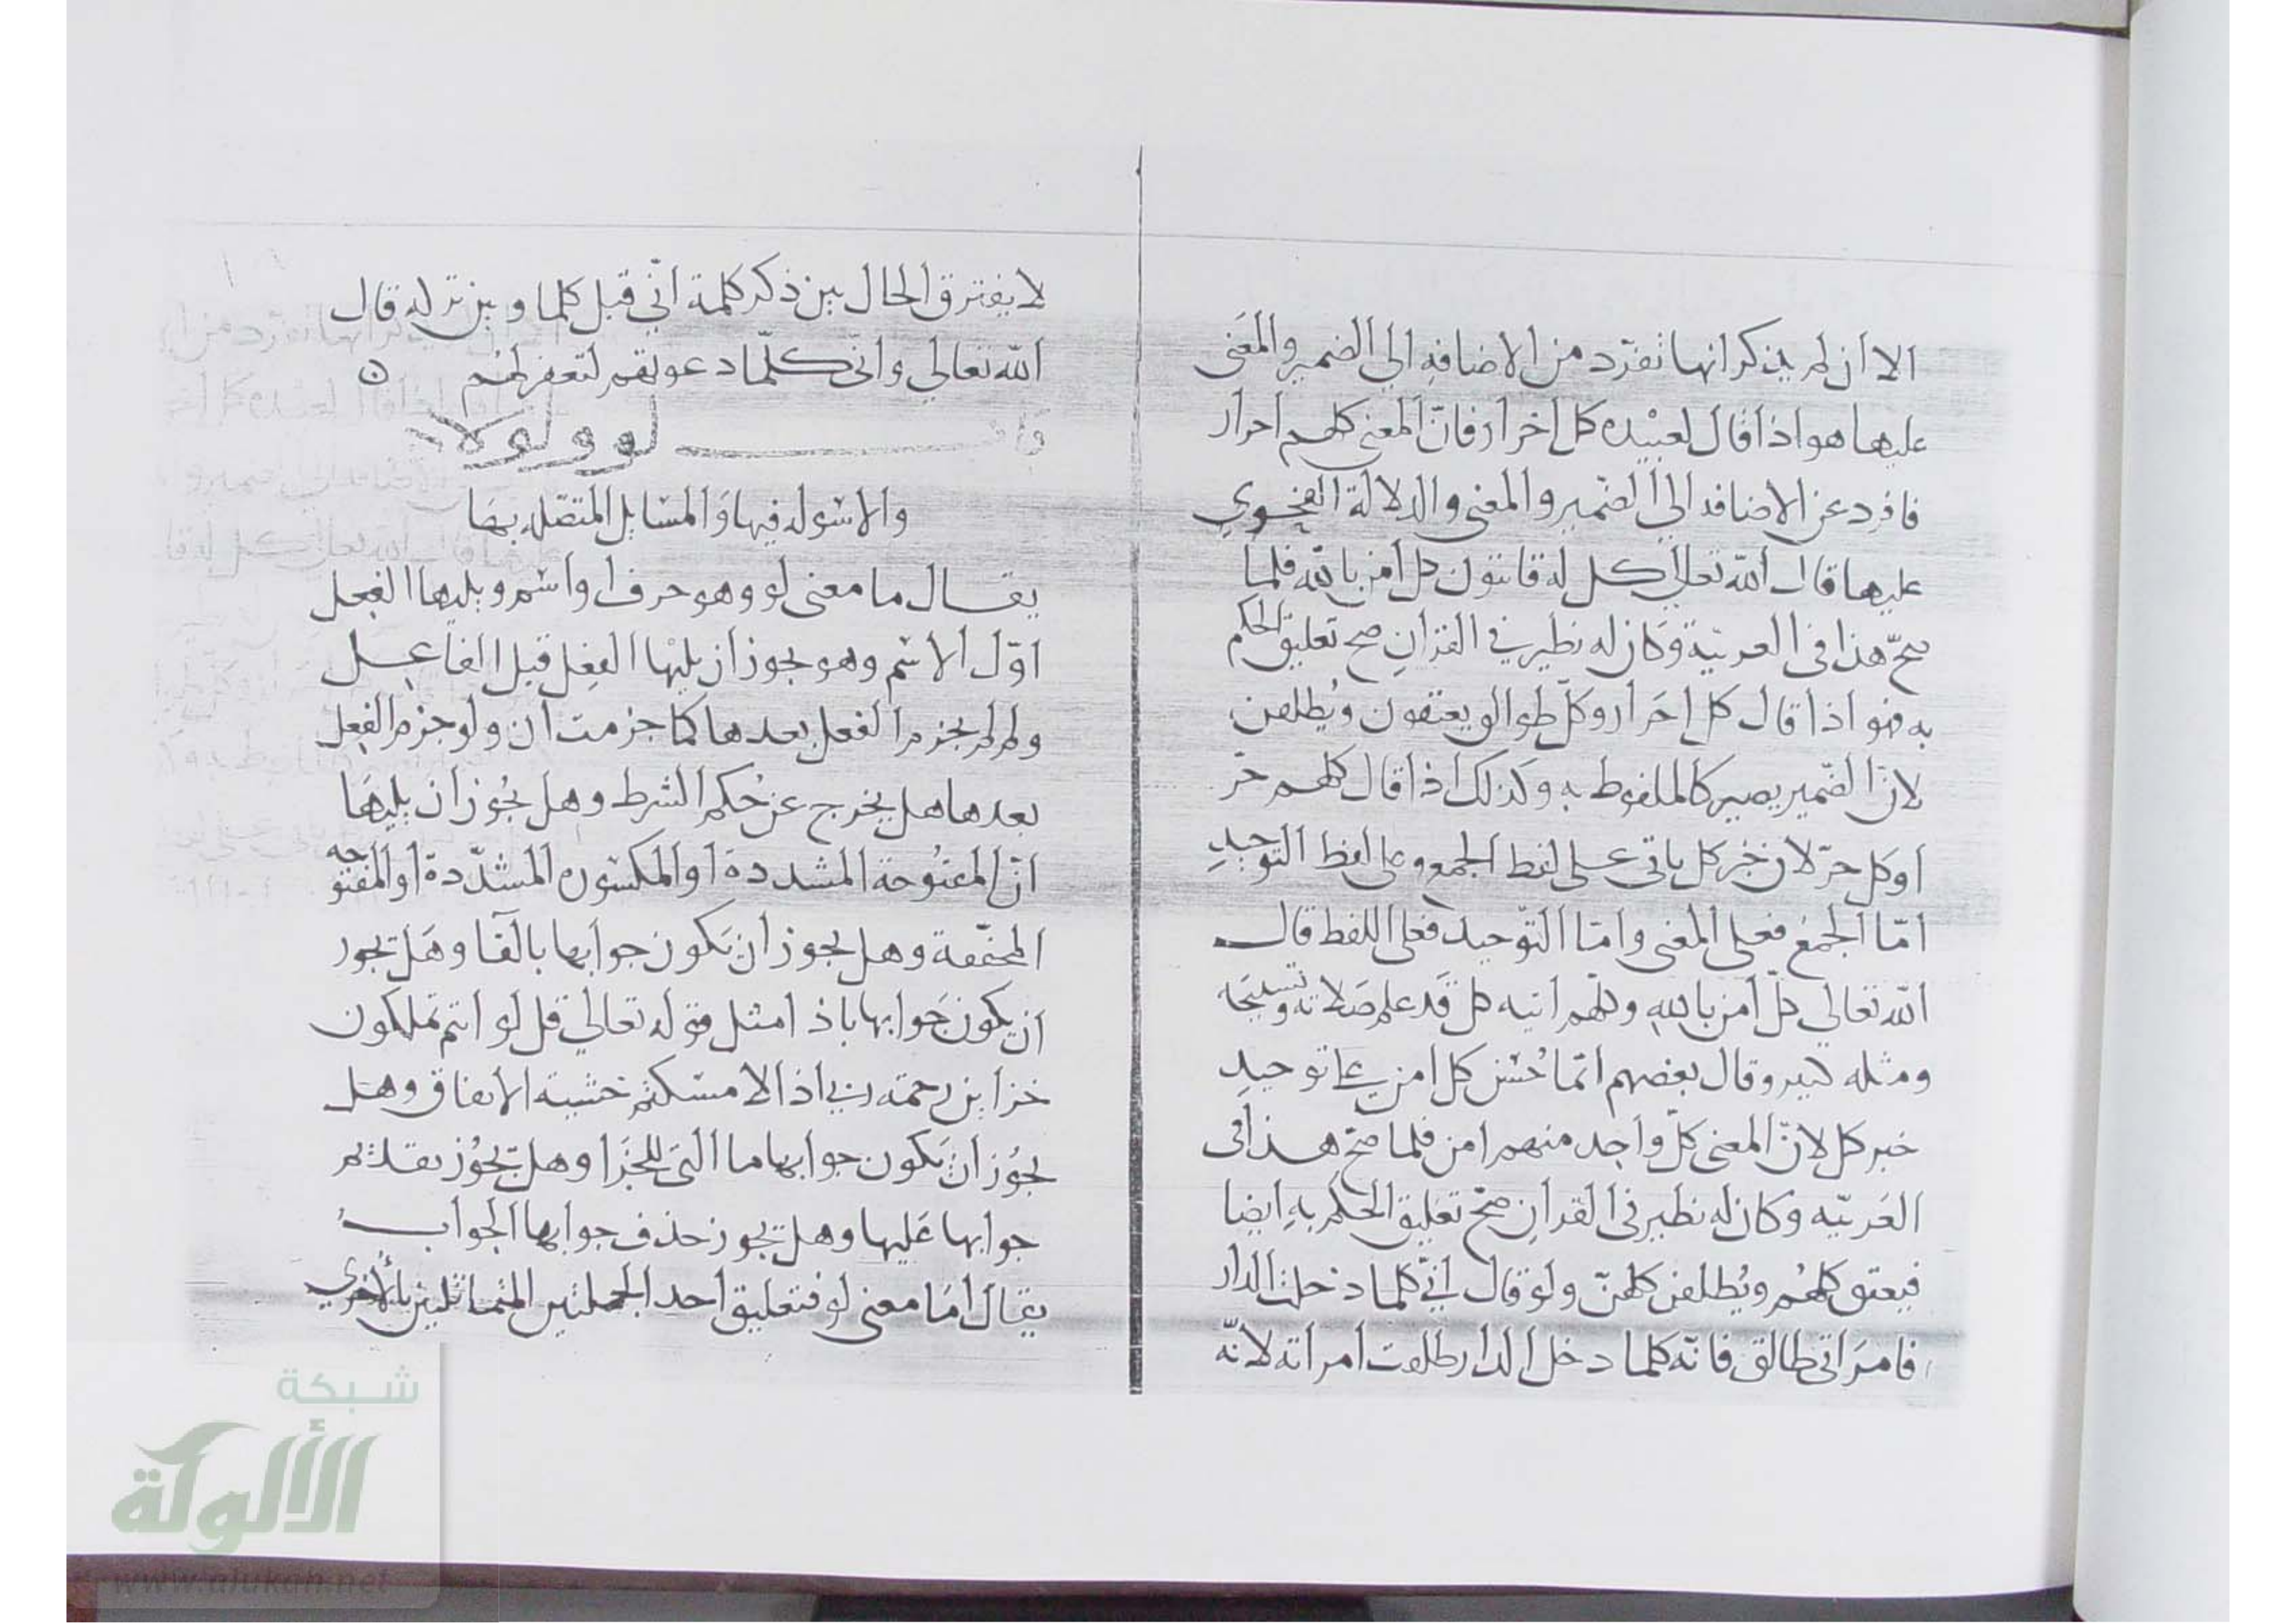 الا ان لم يذكر انها تفرد من الاضافه الي الضمير والمعنى
عليها هو اذا قال لعبيده كل احرار فان المعنى كلهم احرار
فافرد عن الاضافه الي الضمير والمعنى والدلالة الفحوي
عليها قال الله تعالى كل له قانتون كل امن بالله فلما
صح هذا في العربية وكان له نظير في القران صح تعليق الحكم
به فهو اذا قال كل احرار وكل طوالق يعتقون ويطلقن
لان الضمير يصير كالملفوظ به وكذلك اذا قال كلهم حر
او كل حر لان خبر كل ياتي على لفظ الجمع وعلى لفظ التوحيد
اما الجمع فعلى المعنى واما التوحيد فعلى اللفظ قال
الله تعالي كل امن بالله وكلهم اتيه كل قد علم صلاته وتسبيحه
ومثله كثير وقال بعضهم انما حسن كل امن على توحيد
خبر كل لان المعنى كل واحد منهم امن فلما صح هذا في
العربيه وكان له نظير في القران صح تعليق الحكم به ايضا
فيعتق كلهم ويطلقن كلهن ولو قال اني كلما دخلت الدار
فامراتي طالق فانه كلما دخل الدار طلقت امراته لانه
لا يفترق الحال بين ذكر كلمة اني قبل كلما وبين تركه قال
الله تعالي واني كلما دعوتهم لتغفر لهم ه
باب لو ولولا
والاسوله فيها والمسايل المتصله بها
يقال ما معنى لو وهو حرف او اسم ويليها الفعل
او الاسم وهو يجوز ان يليها الفعل قبل الفاعل
ولم لم يجزم الفعل بعدها كما جزمت ان ولو جزم الفعل
بعدها هل يخرج عن حكم الشرط وهل يجوز ان يليها
ان المفتوحة المشددة او المكسوره المشددة او المفتوحه
المخففة وهل يجوز ان يكون جوابها بالفا وهل يجوز
ان يكون جوابها باذا مثل قوله تعالي قل لو انتم تملكون
خزاين رحمة ربي اذا لامسكتم خشية الانفاق وهل
يجوز ان يكون جوابها ما التي للجزا وهل يجوز تقديم
جوابها عليها وهل يجوز حذف جوابها الجواب
يقال اما معنى لو فتعليق احد الجملتين المتماثلتين بالاخري
شبكة
الألوكة
www.alukah.net